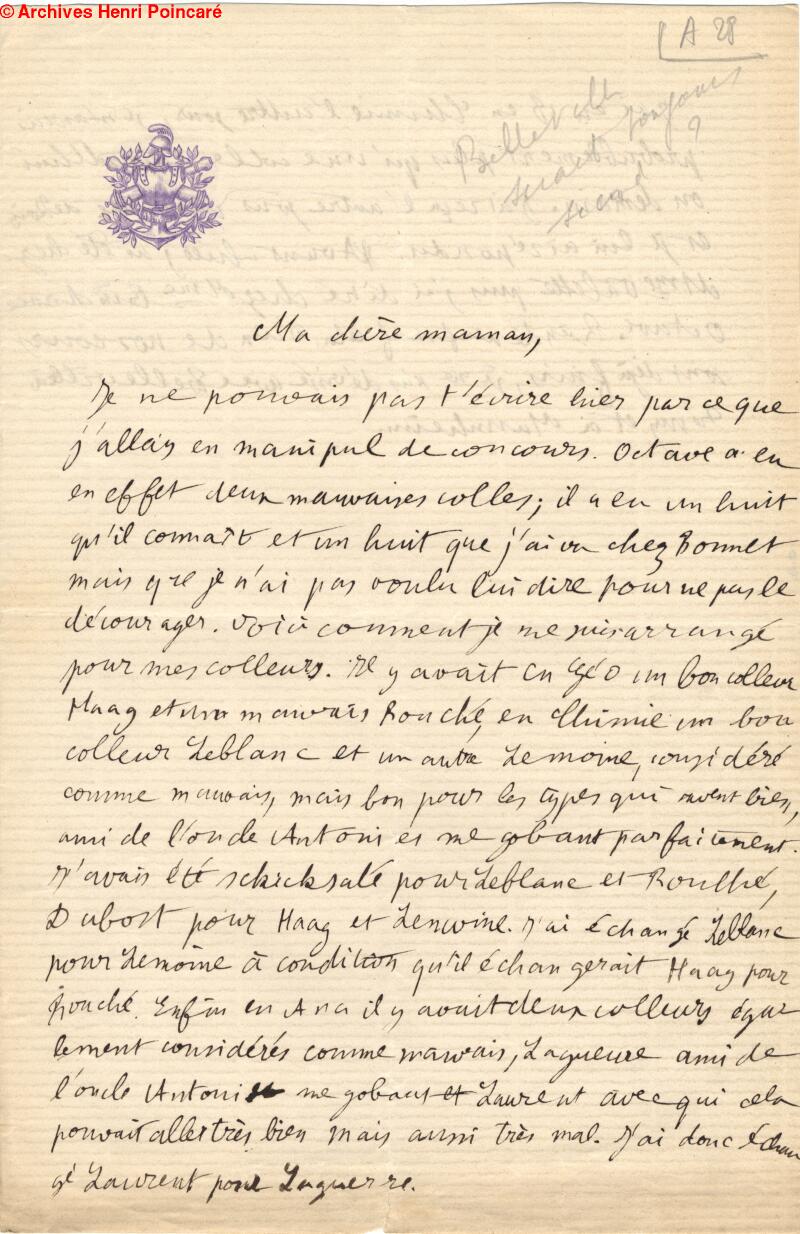 © Archives Henri Poincaré
A 28
Ma chère maman,
Je ne pouvais pas t'écrire hier parce que
j'allais en manipul de concours. Octave a eu
en effet deux mauvaises colles; il a eu un huit
qu'il connaît et un huit que j'ai vu chez Bonnet
mais que je n'ai pas voulu lui dire pour ne pas le
décourager. Voici comment je me suis arrangé
pour mes colleurs. Il y avait en Géo un bon colleur
Haag et un mauvais Rouché, en Chimie un bon
colleur Leblanc et un autre Lemoine, considéré
comme mauvais, mais bon pour les types qui savent bien,
ami de l'oncle Antoni et me gobant parfaitement.
J'avais été schicksalé pour Leblanc et Rouché,
Dubost pour Haag et Lemoine. J'ai échangé Leblanc
pour Lemoine à condition qu'il échangerait Haag pour
Rouché. Enfin en Ana il y avait deux colleurs éga
lement considérés comme mauvais, Laguerre ami de
l'oncle Antoni me gobant et Laurent avec qui cela
pouvait aller très bien mais aussi très mal. J'ai donc échan
gé Laurent pour Laguerre.